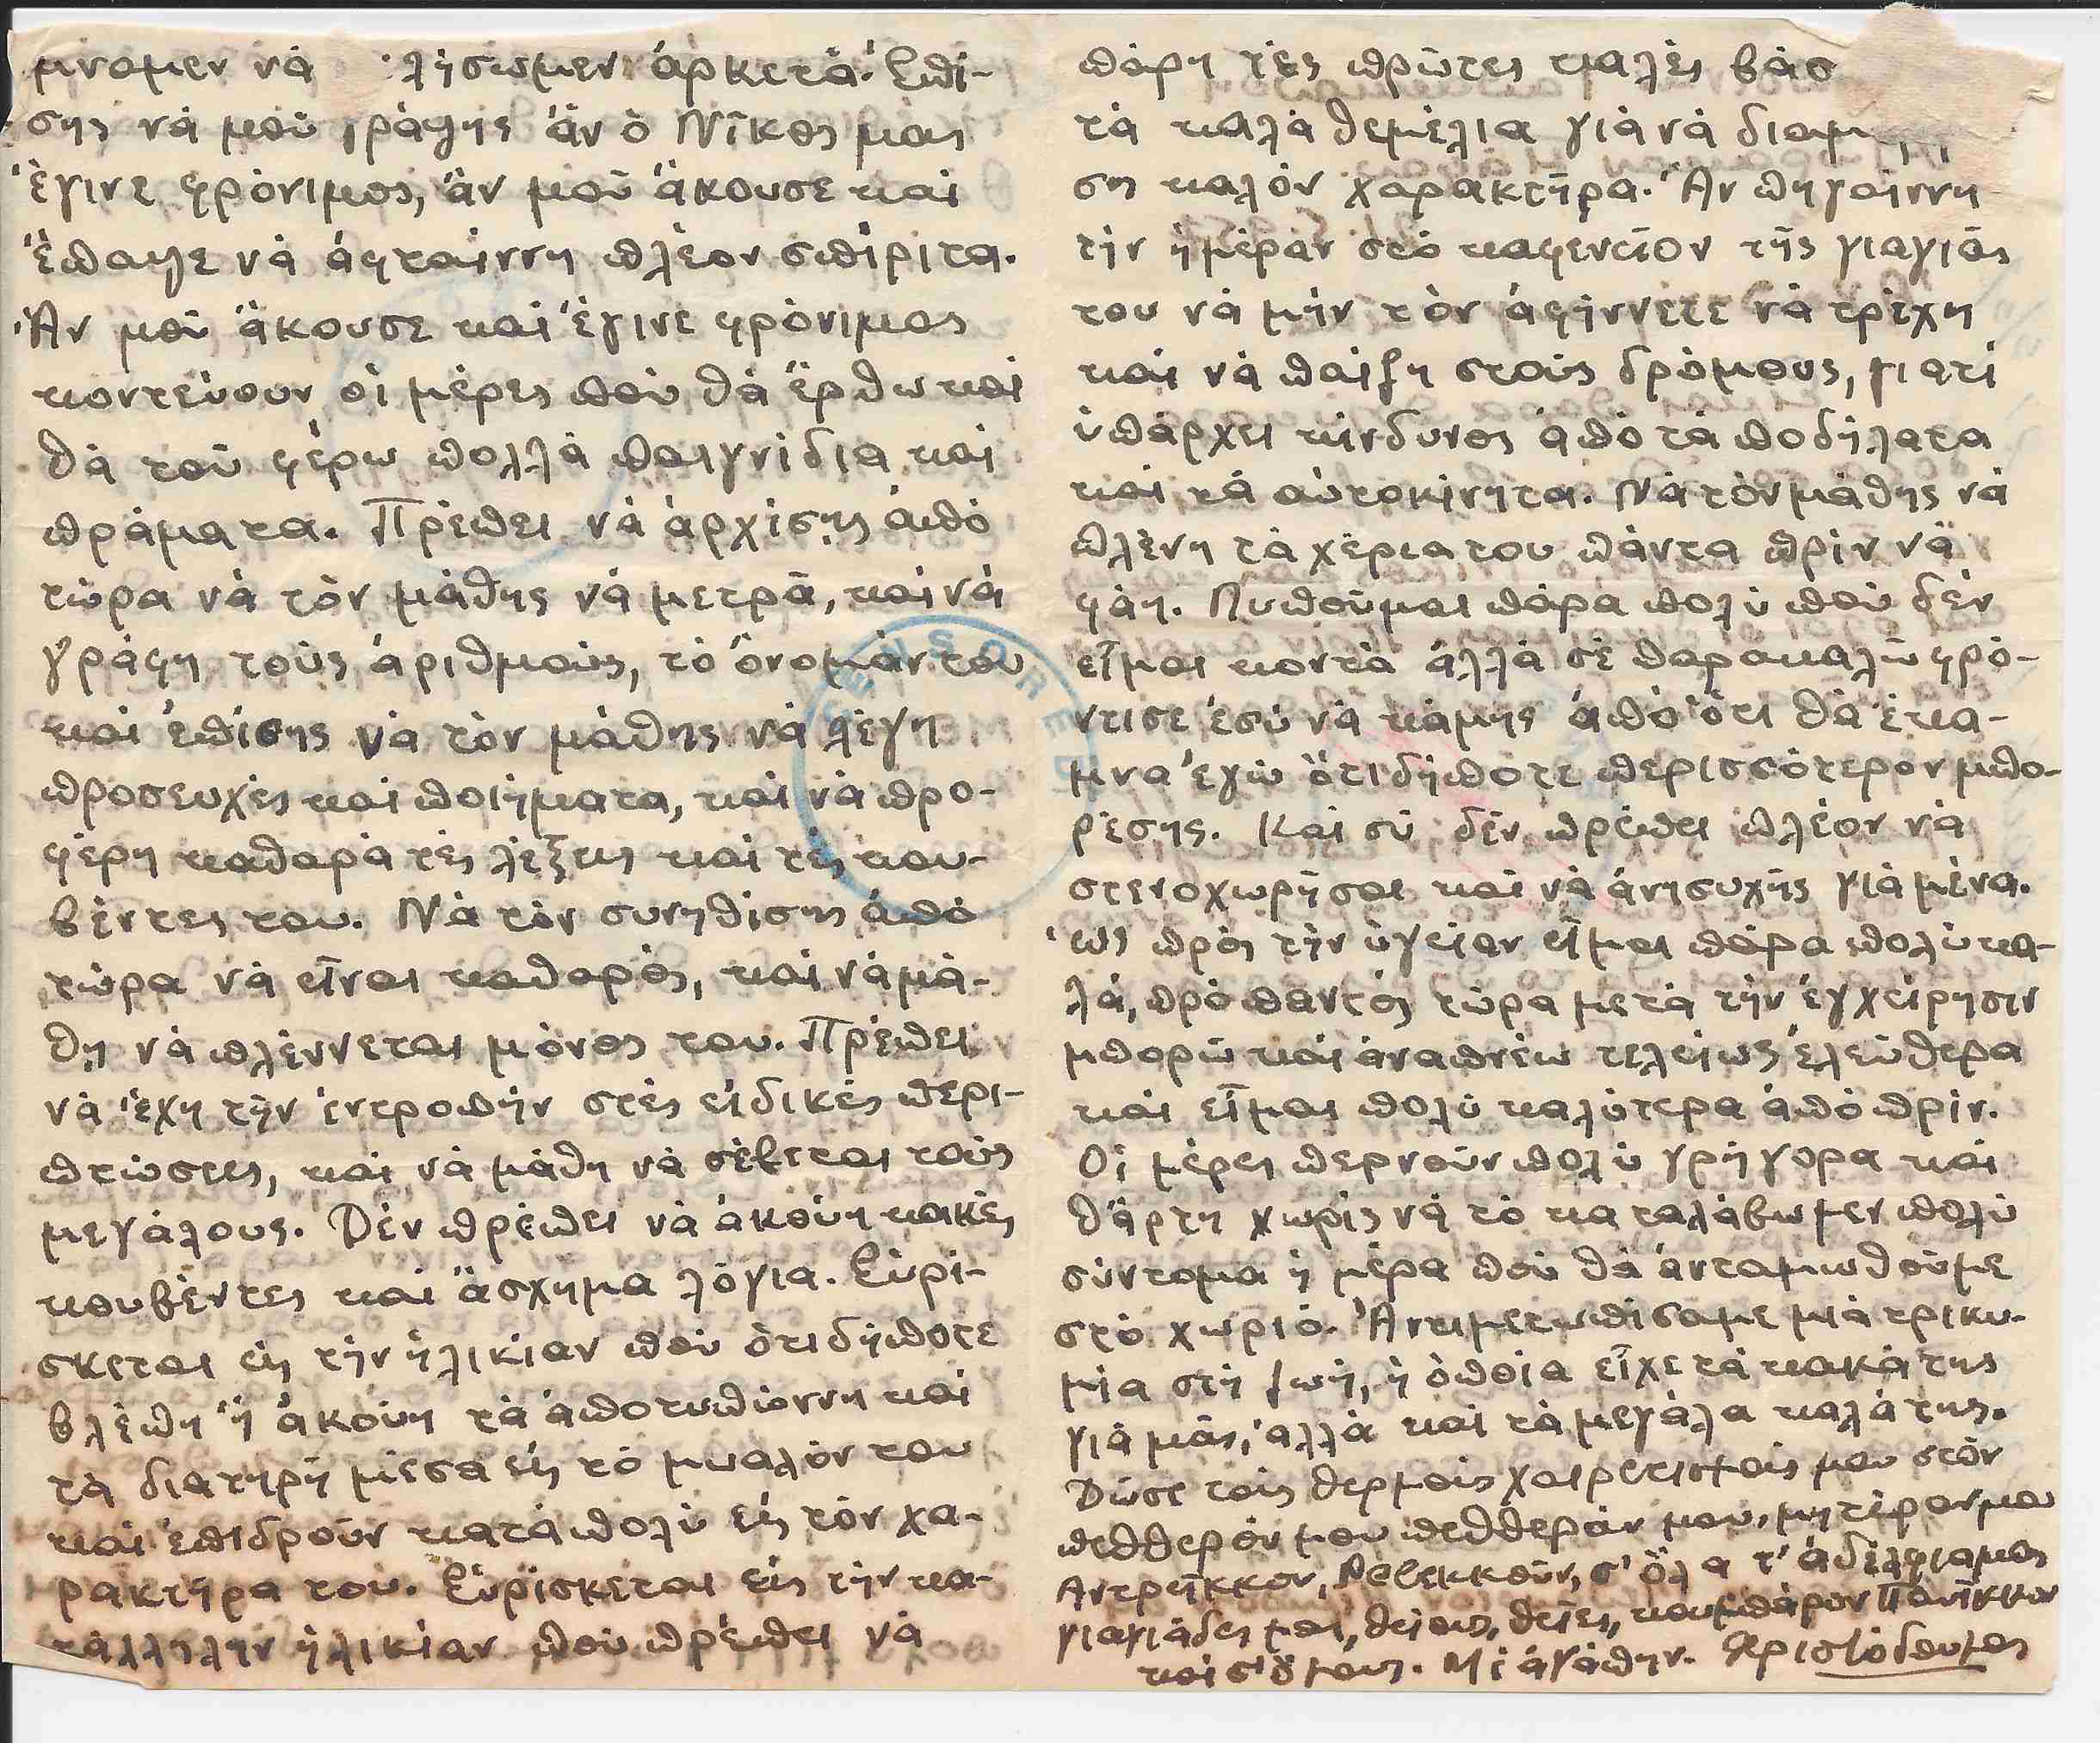 μναμεν νὰ λήσωμεν ἀρκετά. Ἐπί-
σης νὰ μοῦ γράψης ἄν ὁ Νῖκος μας
ἔγινε φρόνιμος, ἄν μοῦ ἄκουσε καὶ
ἔπαψε νὰ ἁφταίννη πλέον σπίριτα.
Ἄν μοῦ ἄκουσε καὶ ἔγινε φρόνιμος
κοντεύουν οἱ μέρες ποὺ θὰ ἔρθω καὶ
θὰ τοῦ φέρω πολλὰ παιγνίδια καὶ
πράματα. Πρέπει νὰ ἀρχίσης ἀπὸ
τώρα νὰ τὸν μάθης νὰ μετρᾶ, καὶ νὰ
γράφη τοὺς ἀριθμούς, τὸ ὄνομάν του
καὶ ἐπίσης νὰ τὸν μάθης νὰ λέγη
προσευχὲς καὶ ποιήματα, καὶ νὰ προ-
φέρη καθαρὰ τὲς λέξεις καὶ τὲς κου-
βέντες του. Νὰ τὸν συνηθίσης ἀπὸ
τώρα νὰ εἶναι καθαρός, καὶ νὰ μά-
θη νὰ πλέννεται μόνος του. Πρέπει
νὰ ἔχη τὴν ἐντροπὴν στὲς εἰδικὲς περι-
πτώσεις, καὶ νὰ μάθη νὰ σέβεται τοὺς
μεγάλους. Δὲν πρέπει νὰ ἀκούη κακὲς
κουβέντες καὶ ἄσχημα λόγια. Εὑρί-
σκεται εἰς τὴν ἡλικίαν ποὺ ὁτιδήποτε
βλέπη ἤ ἀκούη τὰ ἀποτυπώννη καὶ
τὰ διατηρῆ μέσα εἰς τὸ μυαλόν του
καὶ ἐπιδροῦν κατὰ πολὺ εἰς τὸν χα-
ρακτῆρα του. Εὑρίσκεται εἰς τὴν κα-
τάλληλην ἡλικίαν ποὺ πρέπει νὰ
πάρη τὲς πρῶτες καλὲς βάσ
τὰ καλὰ θεμέλια γιὰ νὰ διαμ
ση καλὸν χαρακτῆρα. Ἄν πηγαίννη
τὴν ἡμέραν στὸ καφενεῖον τῆς γιαγιᾶς
του νὰ μὴν τὸν ἀφίννετε νὰ τρέχη
καὶ νὰ παίζη στοὺς δρόμους, γιατὶ
ὑπάρχει κίνδυνος ἀπὸ τὰ ποδήλατα
καὶ τὰ αὐτοκίνητα. Νὰ τὸν μάθης νὰ
πλένη τὰ χέρια του πάντα πρὶν νὰ
φάη. Λυποῦμαι πάρα πολὺ ποὺ δὲν
εἶμαι κοντὰ ἀλλὰ σὲ παρακαλῶ φρό-
ντισε ἐσὺ νὰ κάμης ἀπὸ ὅτι θὰ ἔκα-
μνα ἐγὼ ὁτιδήποτε περισσότερον μπο-
ρέσης. Καὶ σὺ δὲν πρέπει πλέον νὰ
στενοχωρῆσαι καὶ νὰ ἀνησυχῆς γιὰ μένα.
Ὡς πρὸς τὴν ὑγείαν εἶμαι πάρα πολὺ κα-
λά, πρὸ παντὸς τώρα μετὰ τὴν ἐγχείρησιν
μπορῶ καὶ ἀναπνέω τελείως ἐλεύθερα
καὶ εἶμαι πολὺ καλύτερα ἀπὸ πρίν.
Οἱ μέρες περνοῦν πολὺ γρήγορα καὶ
θἄρτη χωρὶς νὰ τὸ καταλάβωμεν πολὺ
σύντομα ἡ μέρα ποὺ θὰ ἀνταμωθοῦμε
στὸ χωριό. Ἀντιμετωπίσαμε μιὰ τρικυ-
μία στὴ ζωή, ἡ ὁποία εἶχε τὰ κακά της
γιὰ μᾶς, ἀλλὰ καὶ τὰ μεγάλα καλά της.
Δῶσε τοὺς θερμοὺς χαιρετισμούς μου στὸν
πεθθερόν μου πεθθεράν μου, μητέραν μου
Αντρῆκκον, Ρεβεκκοῦν, σ' ὅλα τ' ἀδέλφια μας
γιαγιάδες μας, θείους, θεῖες, κουμπάρον Πανῆκκον
καὶ σ' ὅλους. Μὲ ἀγάπην. Χριστόδουλος
CENSORED